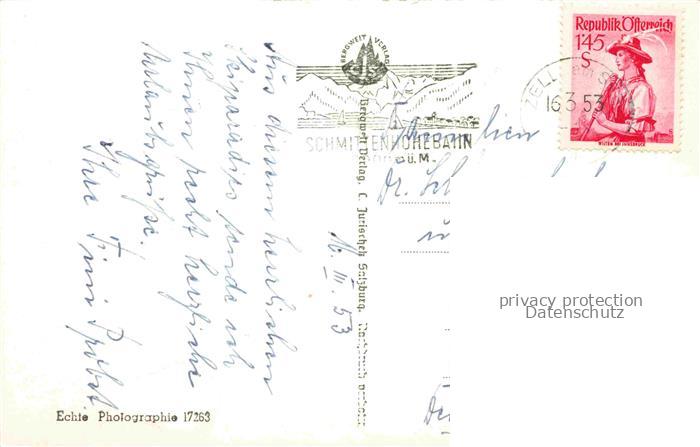 Aus diesem herrlichen
Skiparadies sende ich
Ihnen recht herzliche
Urlaubsgrüße.
Ihre
16. III. 53
Echte Photographie 17263
BERGWELT VERLAG
Bergwelt Verlag, C. Jurischek Salzburg. Nachdruck verboten
SCHMITTENHÖHEBAHN
Ü.M.
ZELL AM SEE
16.3.53
Republik Österreich
1'45
S
WILTEN BEI INNSBRUCK
Dr.
privacy protection
Datenschutz